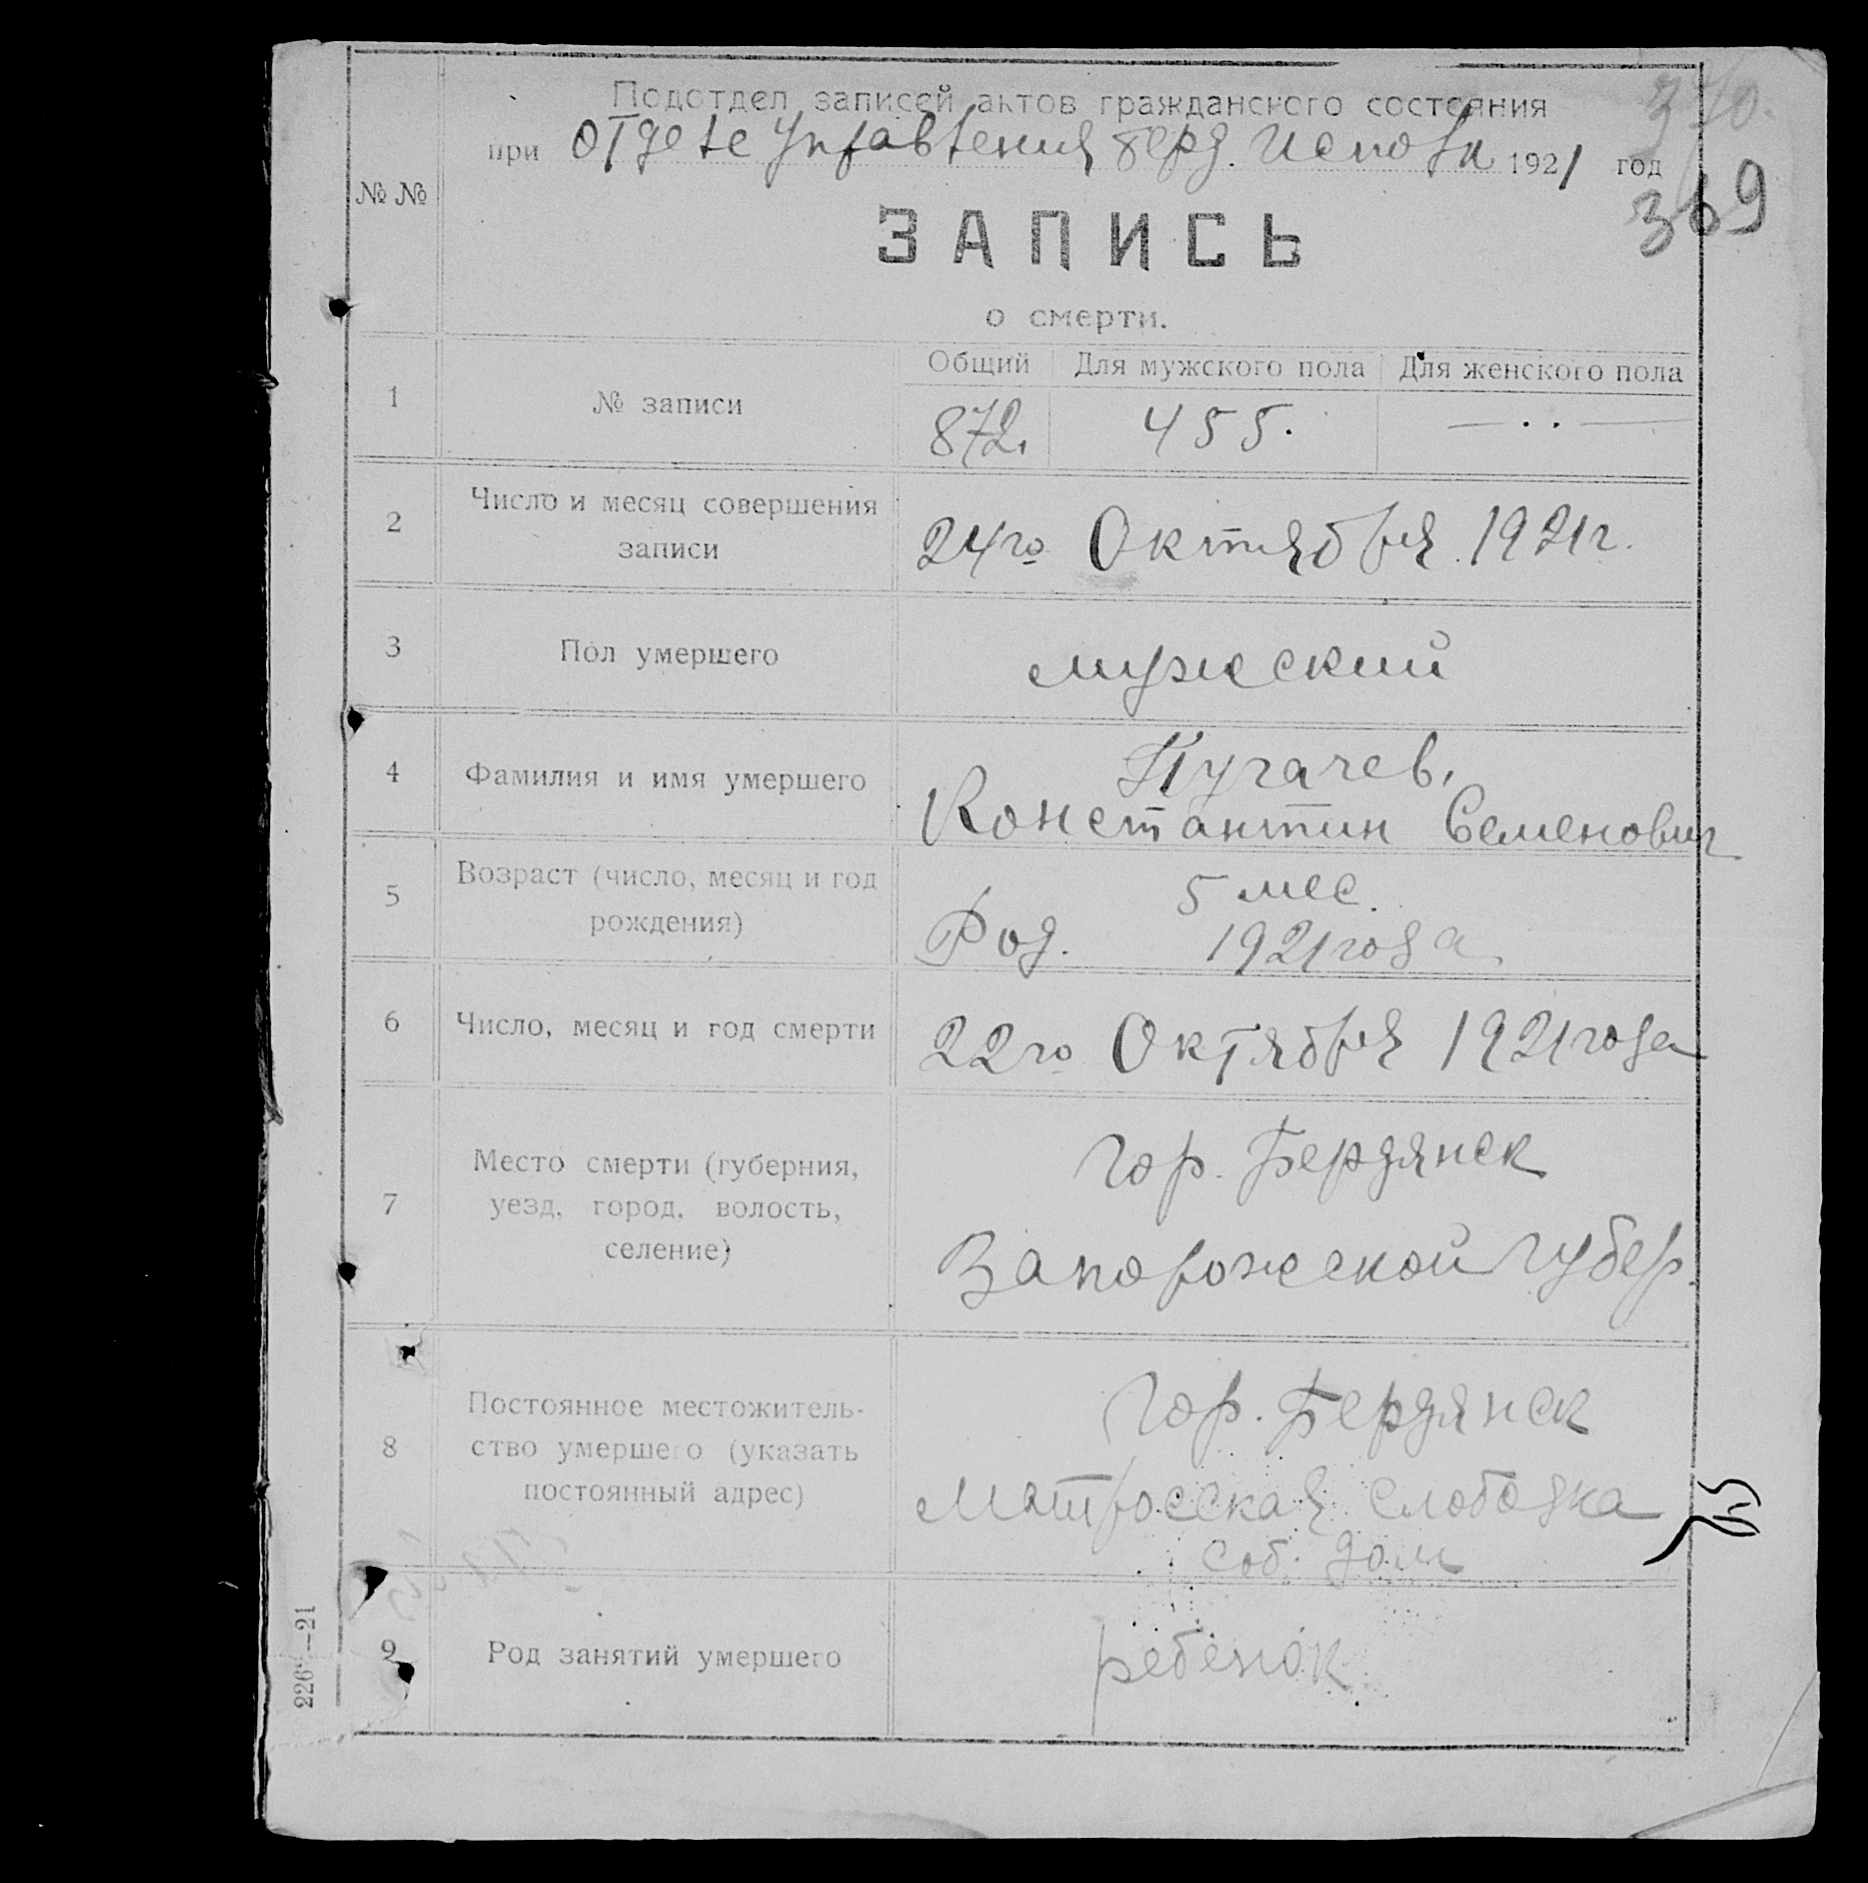 370.
Подотдел записей актов гражданского состояния
при отделе Управления Берд. Исполк 1921 год
369
№ №
ЗАПИСЬ
о смерти.
1 № записи Общий Для мужского пола Для женского пола
872. 455. — . . —
2 Число и месяц совершения записи
24го Октября 1921 г.
3 Пол умершего мужеский
4 Фамилия и имя умершего Пугачев,
Константин Семенович
5 Возраст (число, месяц и год рождения) 5 мес.
Род. 1921 года
6 Число, месяц и год смерти 22го Октября 1921 года
7 Место смерти (губерния, уезд, город, волость, селение)
гор. Бердянск
Запорожской губер.
8 Постоянное местожитель-
ство умершего (указать
постоянный адрес)
гор. Бердянск
Матросская слободка
соб. дом
9 Род занятий умершего ребенок